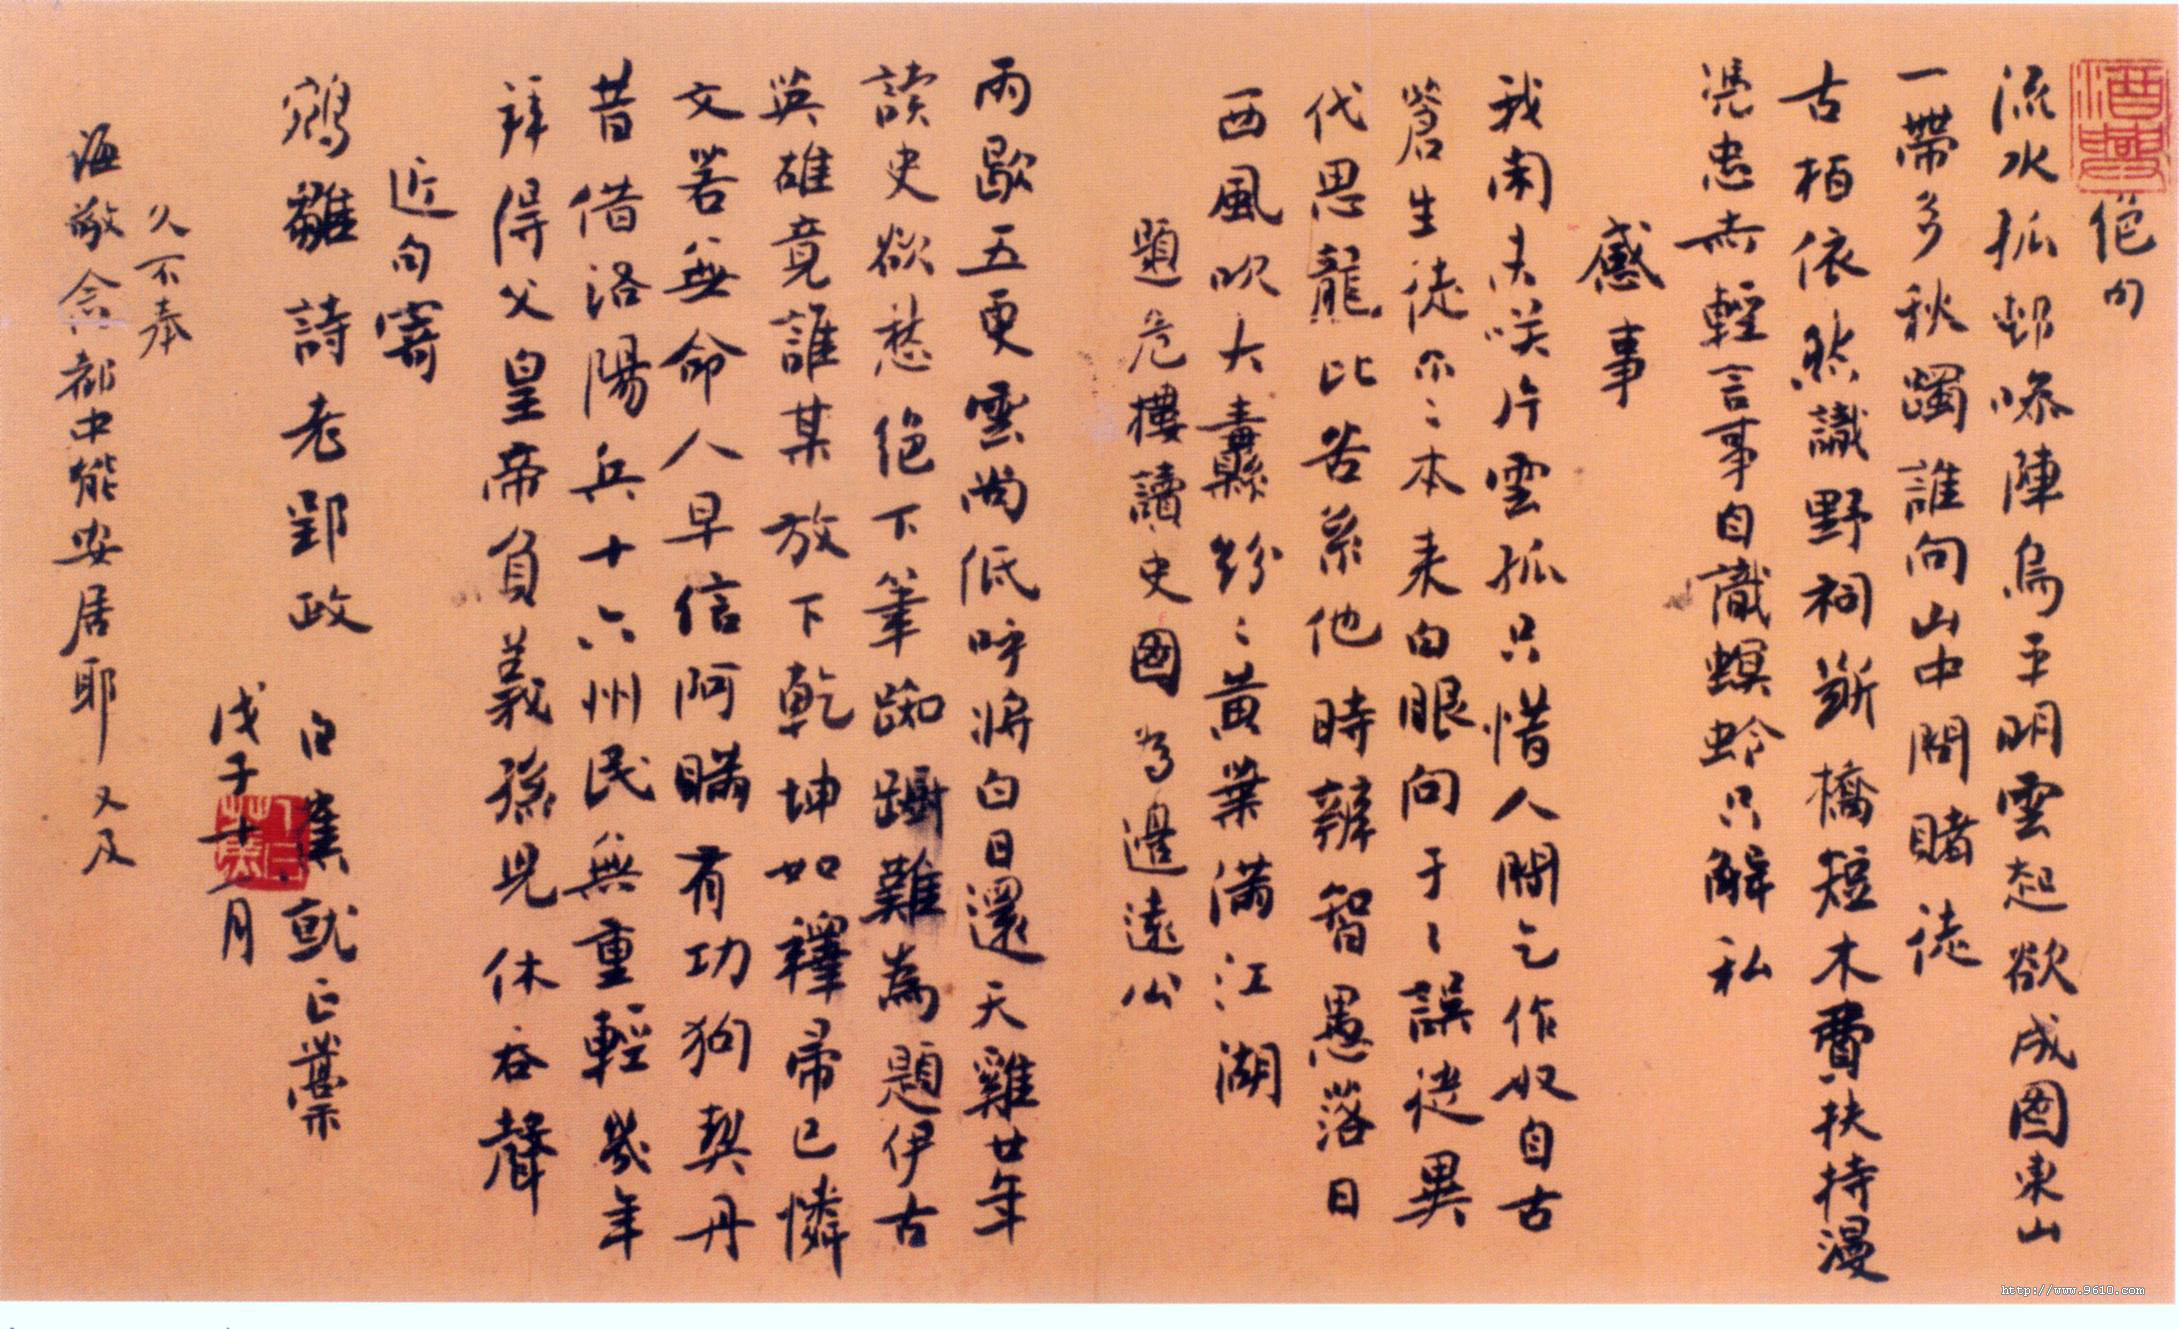 絕句
流水孤邨噪陣烏平明雲起欲成图東山
一帶多秋躅誰向山中問賭徒
古栢依然識野祠斷橋短木費扶持漫
凭忠赤輕言事自識螟蛉只解私
感事
我闲夫咲片雲孤只惜人間乞作奴自古
蒼生徒尔〻本来白眼向于〻誤徒異
代思龍比苦累他時辨智愚落日
西風吹大纛繽紛〻黄葉满江湖
題危樓讀史圖为邊遠公
雨歇五更雲尚低呼将白日還天雞廿年
讀史欲愁絕下筆踟躕難為題伊古
英雄竟誰某放下乾坤如釋帚已憐
文若無命人早信阿瞞有功狗契丹
昔借洛陽兵十六州民無重輕幾年
拜得父皇帝負義孫兒休吞聲
近句寄
鵷雛詩老郢政
白蕉就正藁
戊子十一月
久不奉
诲敬念都中能安居耶 又及
http://www.9610.com